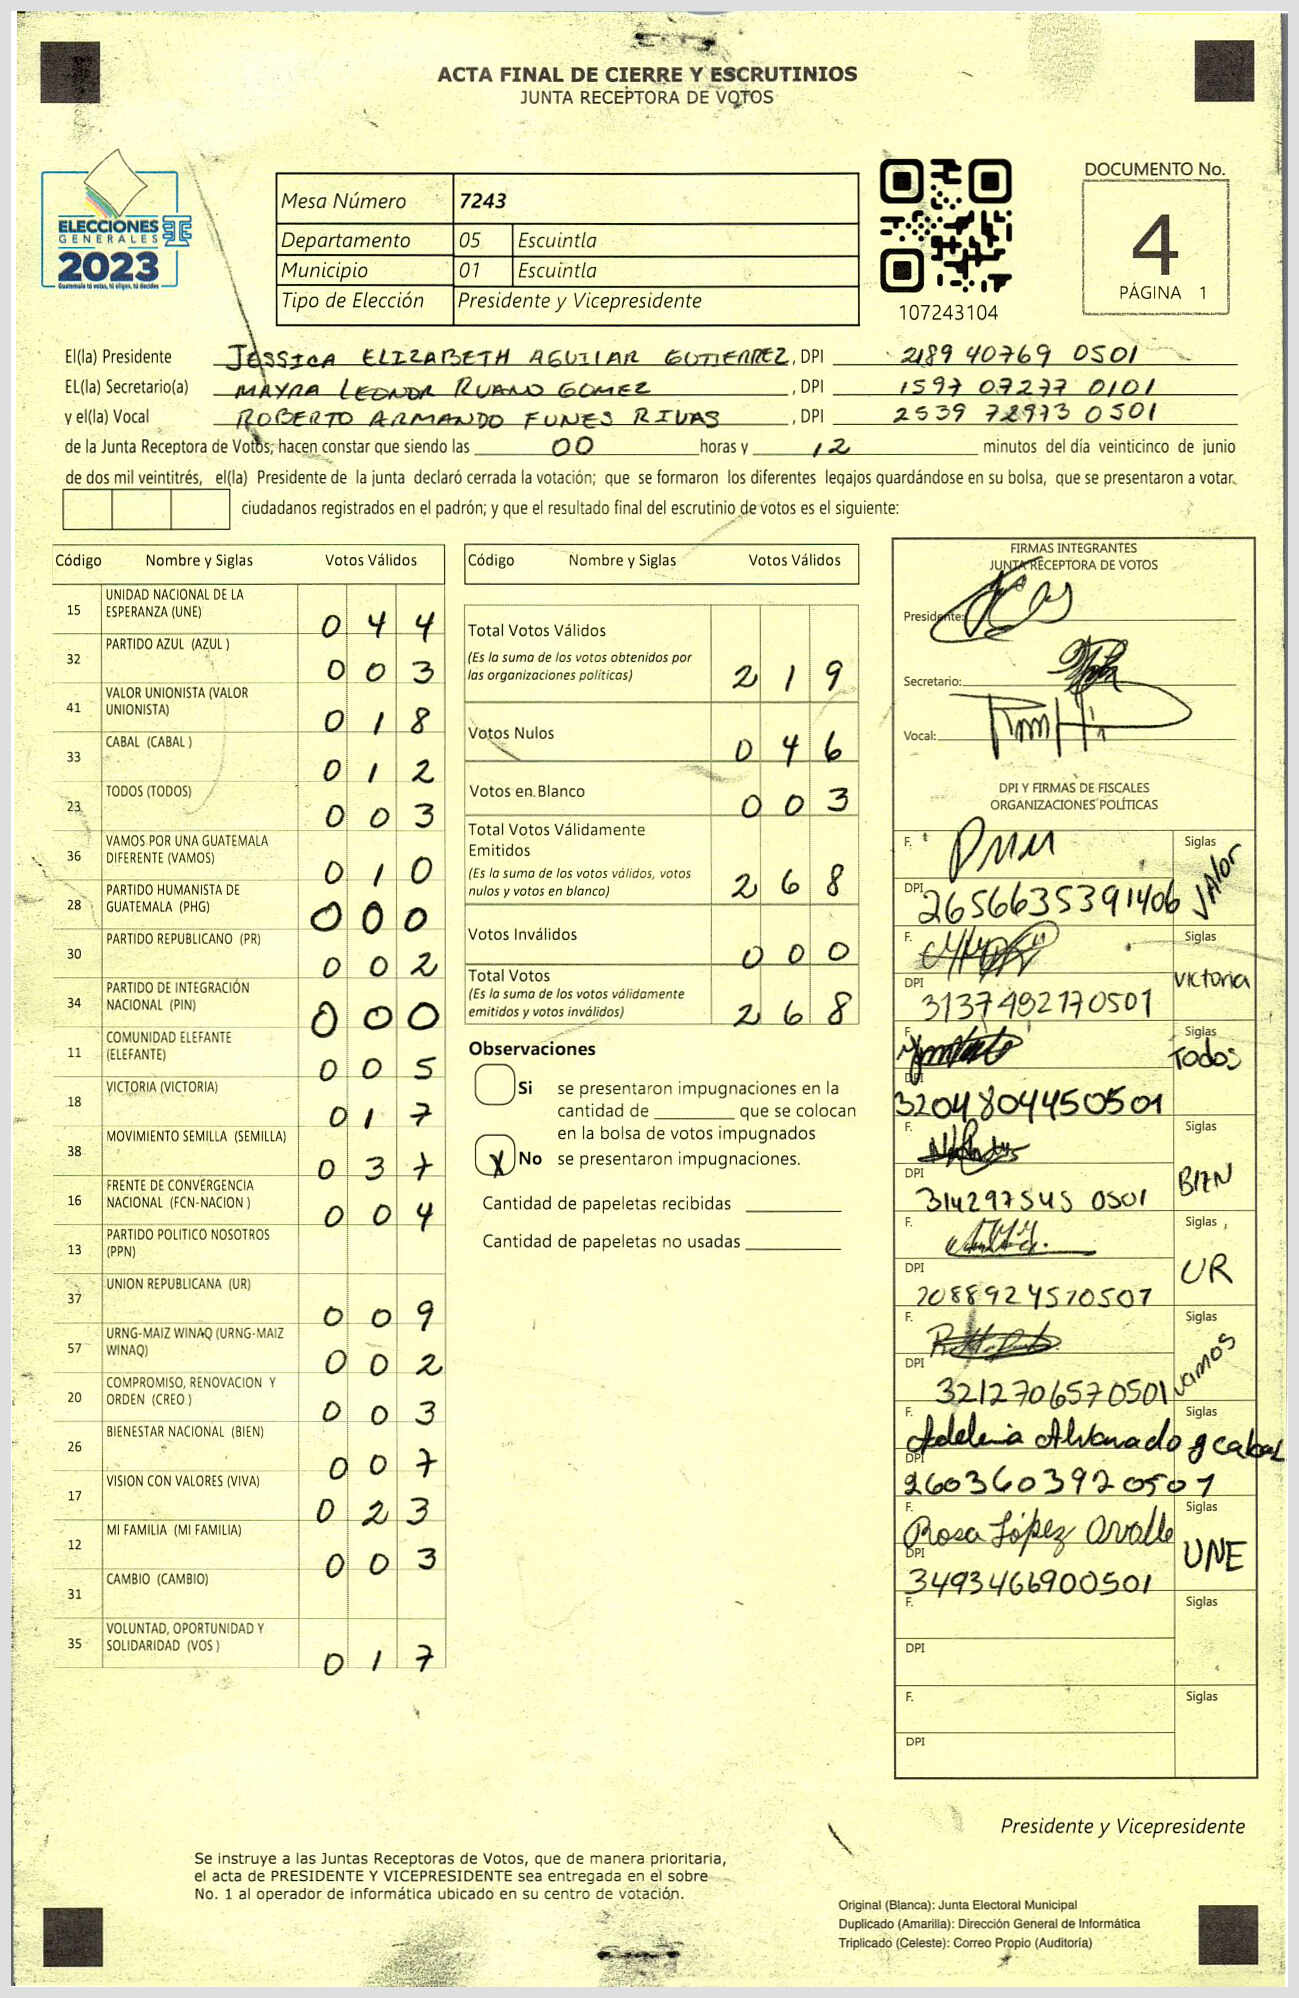 ACTA FINAL DE CIERRE Y ESCRUTINIOS
JUNTA RECEPTORA DE VOTOS
ELECCIONES
GENERALES
2023
Guatemala tú votas, tú eliges, tú decides
Mesa Número 7243
Departamento 05 Escuintla
Municipio 01 Escuintla
Tipo de Elección Presidente y Vicepresidente
107243104
DOCUMENTO No.
4
PÁGINA 1
El(la) Presidente JESSICA ELIZABETH AGUILAR GUTIERREZ, DPI 2189 40769 0501
EL(la) Secretario(a) MAYRA LEONOR RUANO GOMEZ, DPI 1597 07277 0101
y el(la) Vocal ROBERTO ARMANDO FUNES RIVAS, DPI 2539 72973 0501
de la Junta Receptora de Votos, hacen constar que siendo las 00 horas y 12 minutos del día veinticinco de junio
de dos mil veintitrés, el(la) Presidente de la junta declaró cerrada la votación; que se formaron los diferentes legajos guardándose en su bolsa, que se presentaron a votar
ciudadanos registrados en el padrón; y que el resultado final del escrutinio de votos es el siguiente:
Código Nombre y Siglas Votos Válidos
15 UNIDAD NACIONAL DE LA
ESPERANZA (UNE) 0 4 4
32 PARTIDO AZUL (AZUL ) 0 0 3
41 VALOR UNIONISTA (VALOR
UNIONISTA) 0 1 8
33 CABAL (CABAL ) 0 1 2
23 TODOS (TODOS) 0 0 3
36 VAMOS POR UNA GUATEMALA
DIFERENTE (VAMOS) 0 1 0
28 PARTIDO HUMANISTA DE
GUATEMALA (PHG) 0 0 0
30 PARTIDO REPUBLICANO (PR) 0 0 2
34 PARTIDO DE INTEGRACIÓN
NACIONAL (PIN) 0 0 0
11 COMUNIDAD ELEFANTE
(ELEFANTE) 0 0 5
18 VICTORIA (VICTORIA) 0 1 7
38 MOVIMIENTO SEMILLA (SEMILLA) 0 3 7
16 FRENTE DE CONVERGENCIA
NACIONAL (FCN-NACION ) 0 0 4
13 PARTIDO POLITICO NOSOTROS
(PPN)
37 UNION REPUBLICANA (UR) 0 0 9
57 URNG-MAIZ WINAQ (URNG-MAIZ
WINAQ) 0 0 2
20 COMPROMISO, RENOVACION Y
ORDEN (CREO ) 0 0 3
26 BIENESTAR NACIONAL (BIEN) 0 0 7
17 VISION CON VALORES (VIVA) 0 2 3
12 MI FAMILIA (MI FAMILIA) 0 0 3
31 CAMBIO (CAMBIO)
35 VOLUNTAD, OPORTUNIDAD Y
SOLIDARIDAD (VOS ) 0 1 7
Código Nombre y Siglas Votos Válidos
Total Votos Válidos
(Es la suma de los votos obtenidos por
las organizaciones políticas) 2 1 9
Votos Nulos 0 4 6
Votos en Blanco 0 0 3
Total Votos Válidamente
Emitidos
(Es la suma de los votos válidos, votos
nulos y votos en blanco) 2 6 8
Votos Inválidos 0 0 0
Total Votos
(Es la suma de los votos válidamente
emitidos y votos inválidos) 2 6 8
Observaciones
Si se presentaron impugnaciones en la
cantidad de que se colocan
en la bolsa de votos impugnados
X No se presentaron impugnaciones.
Cantidad de papeletas recibidas
Cantidad de papeletas no usadas
FIRMAS INTEGRANTES
JUNTA RECEPTORA DE VOTOS
Presidente:
Secretario:
Vocal:
DPI Y FIRMAS DE FISCALES
ORGANIZACIONES POLÍTICAS
F. Siglas
DPI 2656635391406 VALOR
F. Siglas
DPI 3137492170501 victoria
F. Siglas
DPI 3204804450501 TODOS
F. Siglas
DPI 314297545 0501 BIEN
F. Siglas
DPI 2088924570501 UR
F. Siglas
DPI 3212706570501 vamos
F. Adelina Alvarado g Siglas cabal
DPI 2603603920501
F. Rosa López Ovalle Siglas
DPI 3493466900501 UNE
F. Siglas
DPI
F. Siglas
DPI
Presidente y Vicepresidente
Se instruye a las Juntas Receptoras de Votos, que de manera prioritaria,
el acta de PRESIDENTE Y VICEPRESIDENTE sea entregada en el sobre
No. 1 al operador de informática ubicado en su centro de votación.
Original (Blanca): Junta Electoral Municipal
Duplicado (Amarilla): Dirección General de Informática
Triplicado (Celeste): Correo Propio (Auditoría)